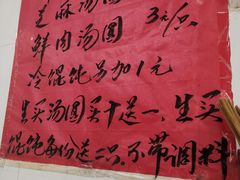 芝麻汤圆
鲜肉汤圆 3元/只
冷馄饨另加1元
生买汤圆买十送一、生买
馄饨每份送二只.不带调料